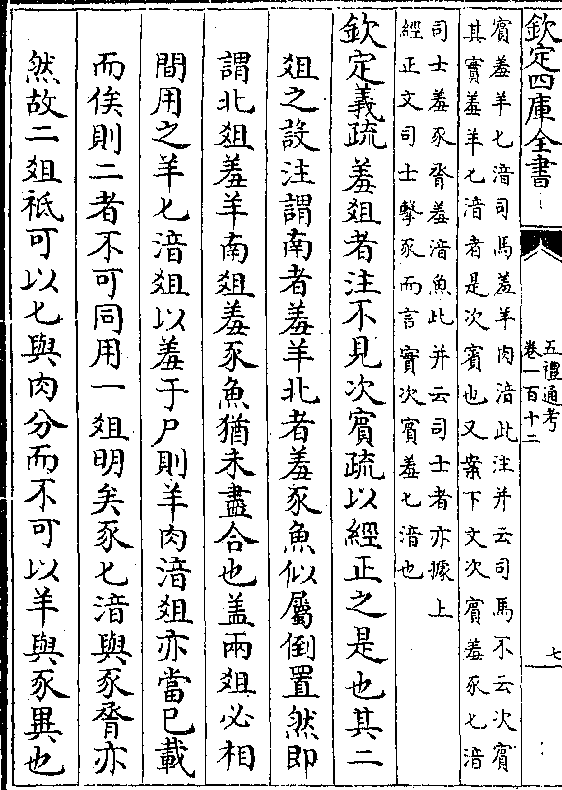 欽定四庫全書
五禮通考
卷一百十二
七
賓羞羊匕湆司馬羞羊肉湆此注并云司馬不云次賓
其實羞羊匕湆者是次賓也又案下文次賓羞豕匕湆
司士羞豕脀羞湆魚此并云司士者亦據上
經正文司士擊豕而言實次賓羞匕湆也
欽定義疏羞俎者注不見次賓疏以經正之是也其二
俎之設注謂南者羞羊北者羞豕魚似屬倒置然即
謂北俎羞羊南俎羞豕魚猶未盡合也盖兩俎必相
間用之羊匕湆俎以羞于尸則羊肉湆俎亦當已載
而俟則二者不可同用一俎明矣豕匕湆與豕脀亦
然故二俎祗可以匕與肉分而不可以羊與豕異也